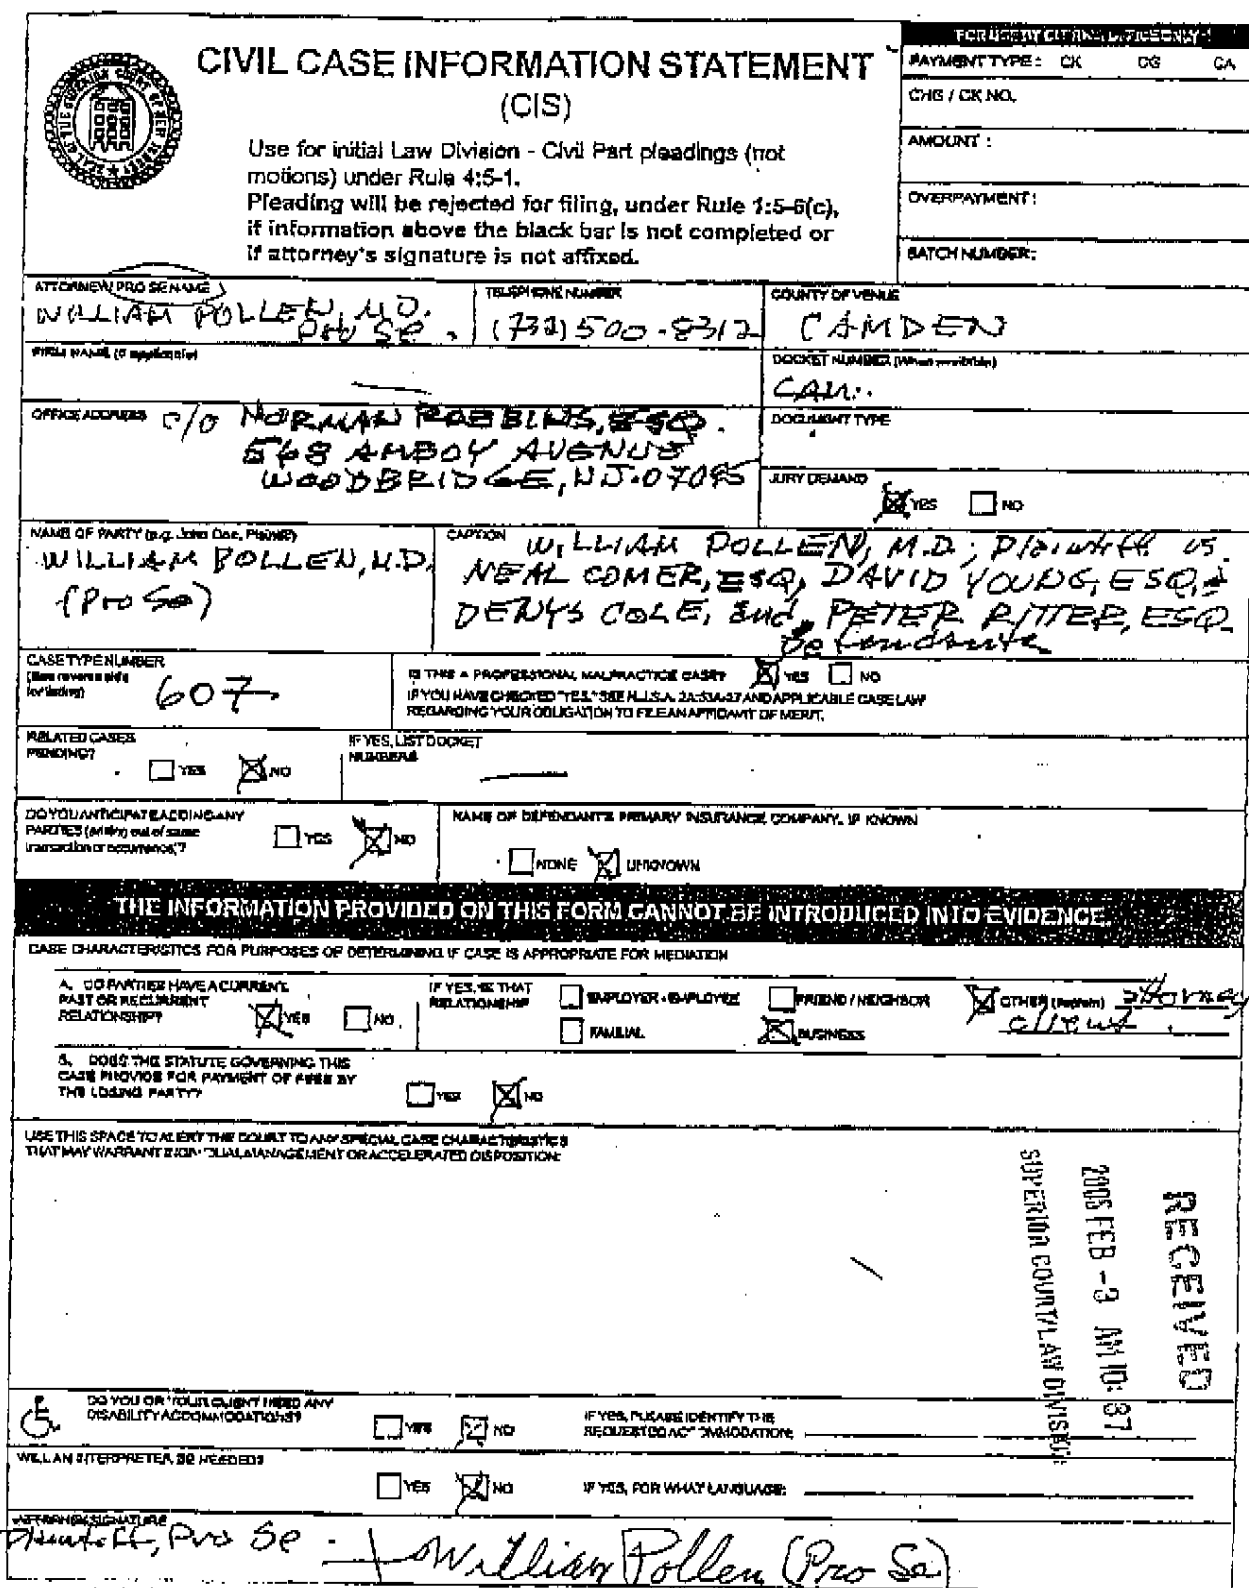 CIVIL CASE INFORMATION STATEMENT
(CIS)
Use for initial Law Division - Civil Part pleadings (not
motions) under Rule 4:5-1.
Pleading will be rejected for filing, under Rule 1:5-6(c),
if information above the black bar is not completed or
if attorney's signature is not affixed.
PAYMENT TYPE: CK CG CA
CHG / CK NO.
AMOUNT:
OVERPAYMENT:
BATCH NUMBER:
ATTORNEY/PRO SE NAME
WILLIAM POLLEN, M.D.
Pro Se.
TELEPHONE NUMBER
(732) 500-8312
COUNTY OF VENUE
CAMDEN
FIRM NAME (if applicable)
DOCKET NUMBER (When available)
CAM.
OFFICE ADDRESS
c/o NORMAN ROBBINS, ESQ.
568 AMBOY AVENUE
WOODBRIDGE, NJ. 07095
DOCUMENT TYPE
JURY DEMAND
YES NO
NAME OF PARTY (e.g. John Doe, Plaintiff)
WILLIAM POLLEN, M.D.
(Pro Se)
CAPTION
WILLIAM POLLEN, M.D., Plaintiff vs.
NEAL COMER, ESQ, DAVID YOUNG, ESQ,
DENYS COLE, and PETER RITTER, ESQ.
Defendants
CASE TYPE NUMBER
(See reverse side
for listing)
607
IS THIS A PROFESSIONAL MALPRACTICE CASE? YES NO
IF YOU HAVE CHECKED "YES," SEE N.J.S.A. 2A:53A-27 AND APPLICABLE CASE LAW
REGARDING YOUR OBLIGATION TO FILE AN AFFIDAVIT OF MERIT.
RELATED CASES
PENDING?
YES NO
IF YES, LIST DOCKET
NUMBERS
DO YOU ANTICIPATE ADDING ANY
PARTIES (arising out of same
transaction or occurrence)?
YES NO
NAME OF DEFENDANT'S PRIMARY INSURANCE COMPANY, IF KNOWN
NONE UNKNOWN
THE INFORMATION PROVIDED ON THIS FORM CANNOT BE INTRODUCED INTO EVIDENCE
CASE CHARACTERISTICS FOR PURPOSES OF DETERMINING IF CASE IS APPROPRIATE FOR MEDIATION
A. DO PARTIES HAVE A CURRENT,
PAST OR RECURRENT
RELATIONSHIP?
YES NO
IF YES, IS THAT
RELATIONSHIP
EMPLOYER - EMPLOYEE FRIEND / NEIGHBOR OTHER (explain) attorney
client
FAMILIAL BUSINESS
B. DOES THE STATUTE GOVERNING THIS
CASE PROVIDE FOR PAYMENT OF FEES BY
THE LOSING PARTY?
YES NO
USE THIS SPACE TO ALERT THE COURT TO ANY SPECIAL CASE CHARACTERISTICS
THAT MAY WARRANT INDIVIDUAL MANAGEMENT OR ACCELERATED DISPOSITION:
RECEIVED
FEB -3 AM 10: 37
SUPERIOR COURT/LAW DIVISION
DO YOU OR YOUR CLIENT NEED ANY
DISABILITY ACCOMMODATIONS?
YES NO
IF YES, PLEASE IDENTIFY THE
REQUESTED ACCOMMODATION:
WILL AN INTERPRETER BE NEEDED?
YES NO
IF YES, FOR WHAT LANGUAGE:
ATTORNEY SIGNATURE
Plaintiff, Pro Se
William Pollen (Pro Se)